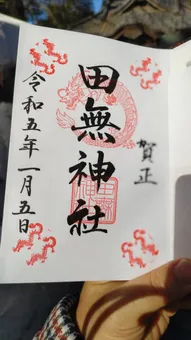 賀正
田無神社
令和五年一月五日